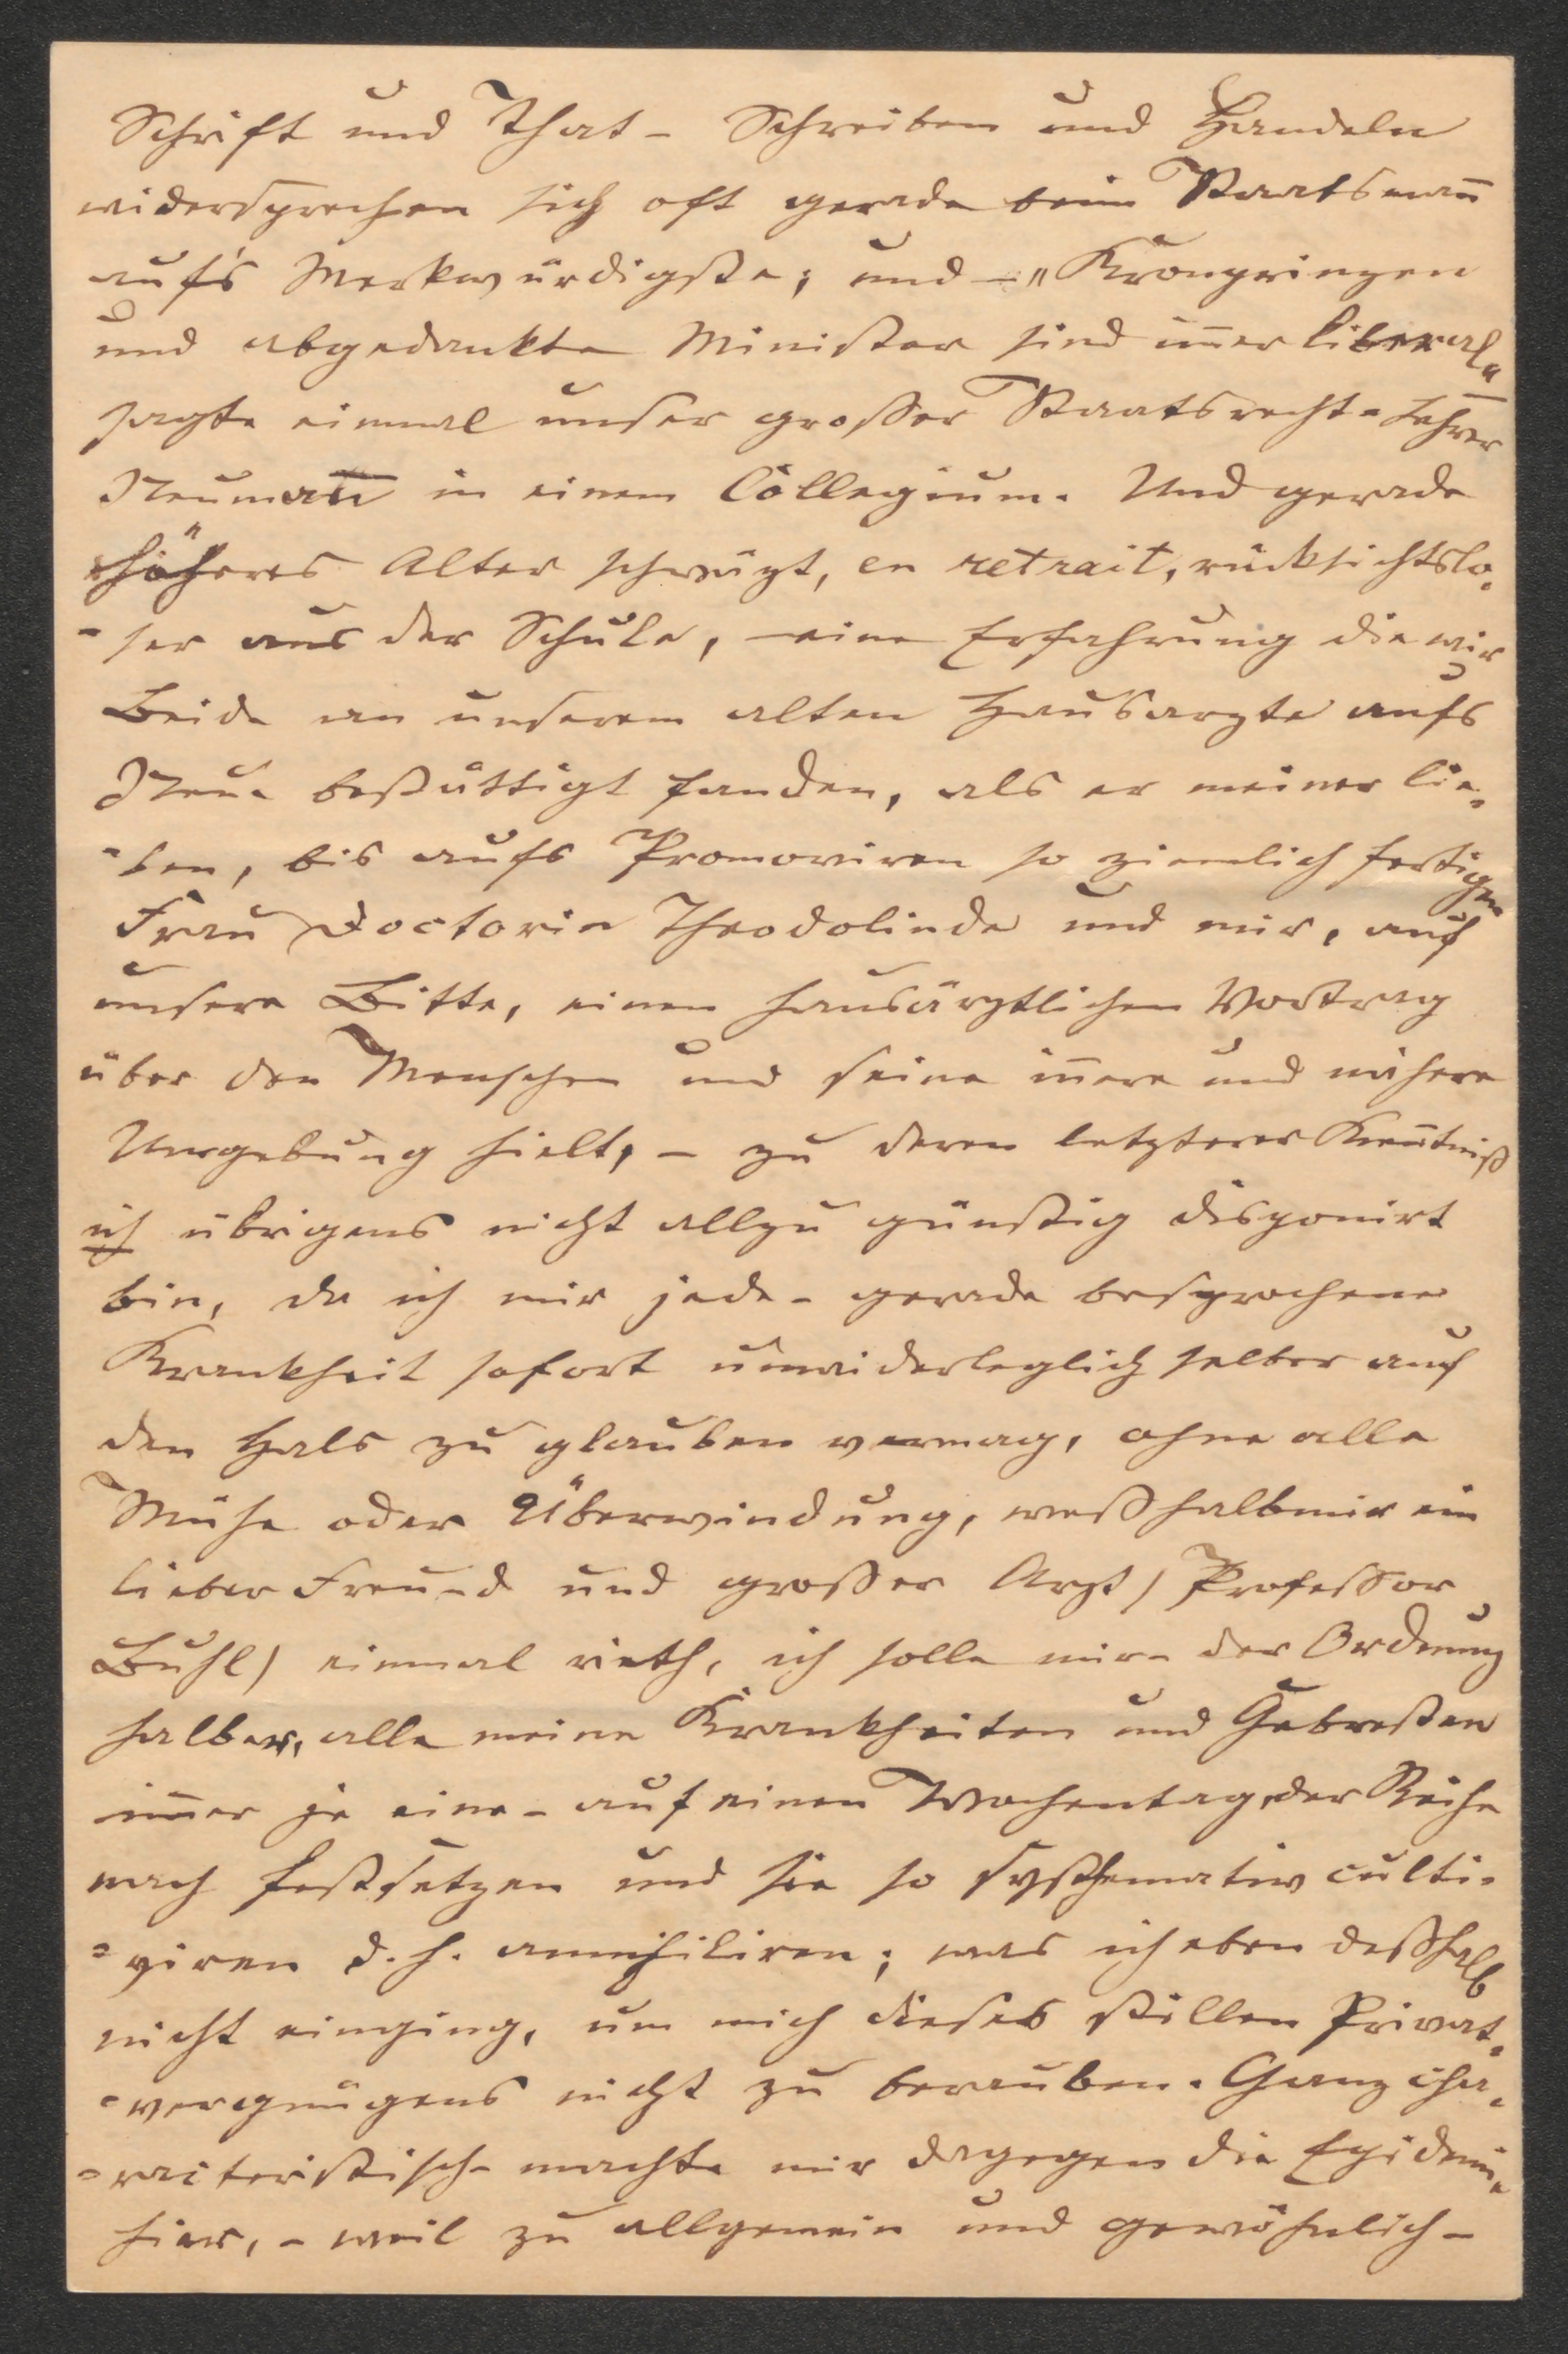 Schrift und That – Schreiben und Handeln
widersprechen sich oft gerade beim Staatsmañ
auf's Merkwürdigste; und – „Kronprinzen
und abgedankte Minister sind im̃er liberal"
sagte einmal unser großer Staatsrecht-Lehrer
Neumañ in einem Collegium. Und gerade
höheres Alter schwäzt, en retrait, rücksichtslo-
-ser aus der Schule, – eine Erfahrung die wir
Beide an unserem alten Hausarzte aufs
Neue bestättigt fanden, als er meiner lie-
-ben, bis aufs Promoviren so ziemlich fertigen
Frau Doctorin Theodolinde und mir, auf
unsere Bitte, einen hausärztlichen Vortrag
über den Menschen und seine iñere und nähere
Umgebung hielt, – zu deren letzterer Keñtniß
ich übrigens nicht allzu günstig disponirt
bin, da ich mir jede – gerade besprochene
Krankheit sofort unwiderleglich selber auf
den Hals zu glauben vermag, ohne alle
Mühe oder Überwindung, weßhalb mir ein
lieber Freund und großer Arzt / Professor
Buhl / einmal rieth, ich solle mir – der Ordnung
halber, alle meine Krankheiten und Gebresten
im̃er je eine – auf einen Wochentag, der Reihe
nach festsetzen und sie so systhematisch culti-
-viren d. h. annihiliren; was ich eben deßhalb
nicht einging, um mich dieses stillen Privat-
-vergnügens nicht zu berauben. Ganz cha-
-racteristisch – machte mir dagegen die Epidemie
hier, – weil zu allgemein und gewöhnlich –